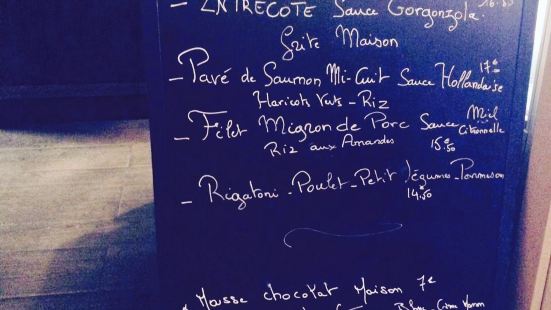 - ENTRECOTE Sauce Gorgonzola.
frite Maison
- Pavé de Saumon Mi-Cuit Sauce Hollandaise 17€
Haricots Verts - Riz
- Filet Mignon de Porc Sauce Miel Citronnelle
Riz aux Amandes 15€50
- Rigatoni - Poulet - Petit légumes - Parmesan
14.50
* Mousse chocolat Maison 7€